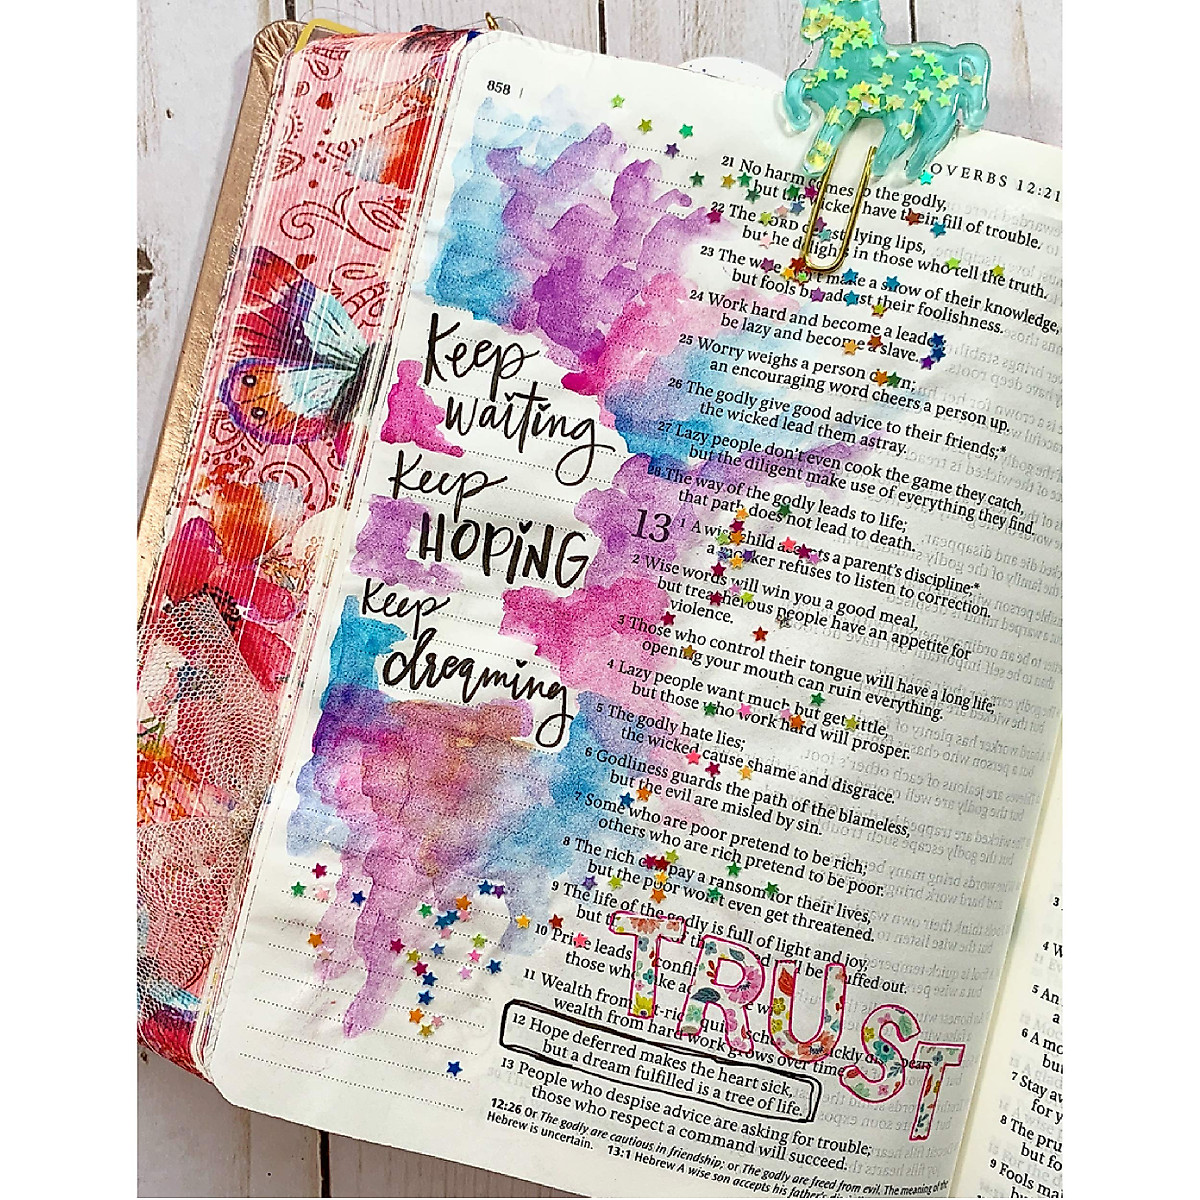 858
OVERBS 12:21
Keep
waiting
Keep
HOPING
Keep
dreaming
21 No harm comes to the godly,
but the wicked have their fill of trouble.
22 The LORD detests lying lips,
but he delights in those who tell the truth.
23 The wise don't make a show of their knowledge,
but fools broadcast their foolishness.
24 Work hard and become a leader;
be lazy and become a slave.
25 Worry weighs a person down;
an encouraging word cheers a person up.
26 The godly give good advice to their friends;*
the wicked lead them astray.
27 Lazy people don't even cook the game they catch,
but the diligent make use of everything they find.
28 The way of the godly leads to life;
that path does not lead to death.
13
1 A wise child accepts a parent's discipline;*
a mocker refuses to listen to correction.
2 Wise words will win you a good meal,
but treacherous people have an appetite for
violence.
3 Those who control their tongue will have a long life;
opening your mouth can ruin everything.
4 Lazy people want much but get little,
but those who work hard will prosper.
5 The godly hate lies;
the wicked cause shame and disgrace.
6 Godliness guards the path of the blameless,
but the evil are misled by sin.
7 Some who are poor pretend to be rich;
others who are rich pretend to be poor.
8 The rich can pay a ransom for their lives,
but the poor won't even get threatened.
9 The life of the godly is full of light and joy,
but the of the will be snuffed out.
10 Pride leads to conflict;
those who take advice are
11 Wealth from get-rich-quick schemes quickly disappears;
wealth from hard work grows over time.
TRUST
12 Hope deferred makes the heart sick,
but a dream fulfilled is a tree of life.
13 People who despise advice are asking for trouble;
those who respect a command will succeed.
12:26 Or The godly are cautious in friendship; or The godly are freed from evil. The meaning of the
Hebrew is uncertain. 13:1 Hebrew A wise son accepts his father's
3
4 W
5 An
6 A mo
bu
7 Stay aw
for y
8 The pru
but fo
9 Fools ma